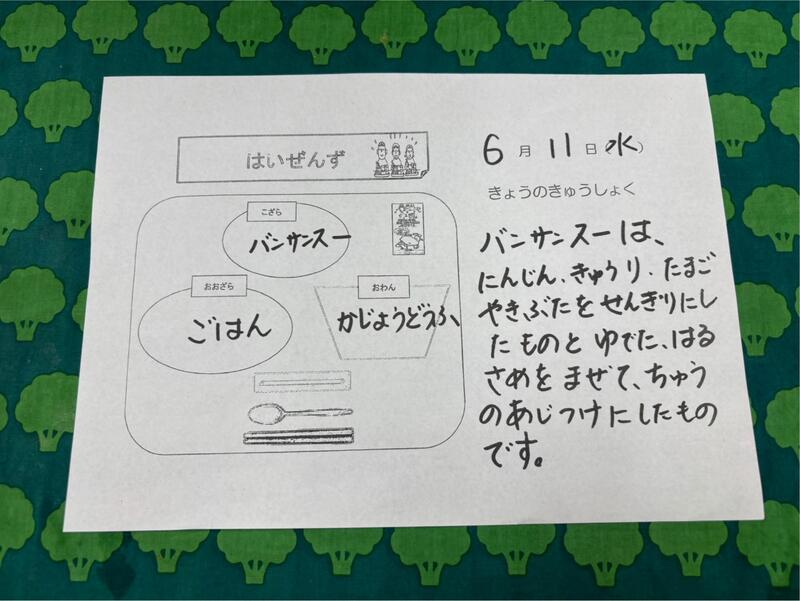 はいぜんず
こざら
バンサンスー
おおざら
ごはん
おわん
かじょうどうふ
6月11日(水)
きょうのきゅうしょく
バンサンスーは、
にんじん、きゅうり、たまご
やきぶたをせんぎりにし
たものとゆでた、はる
さめをまぜて、ちゅう
のあじつけにしたもの
です。